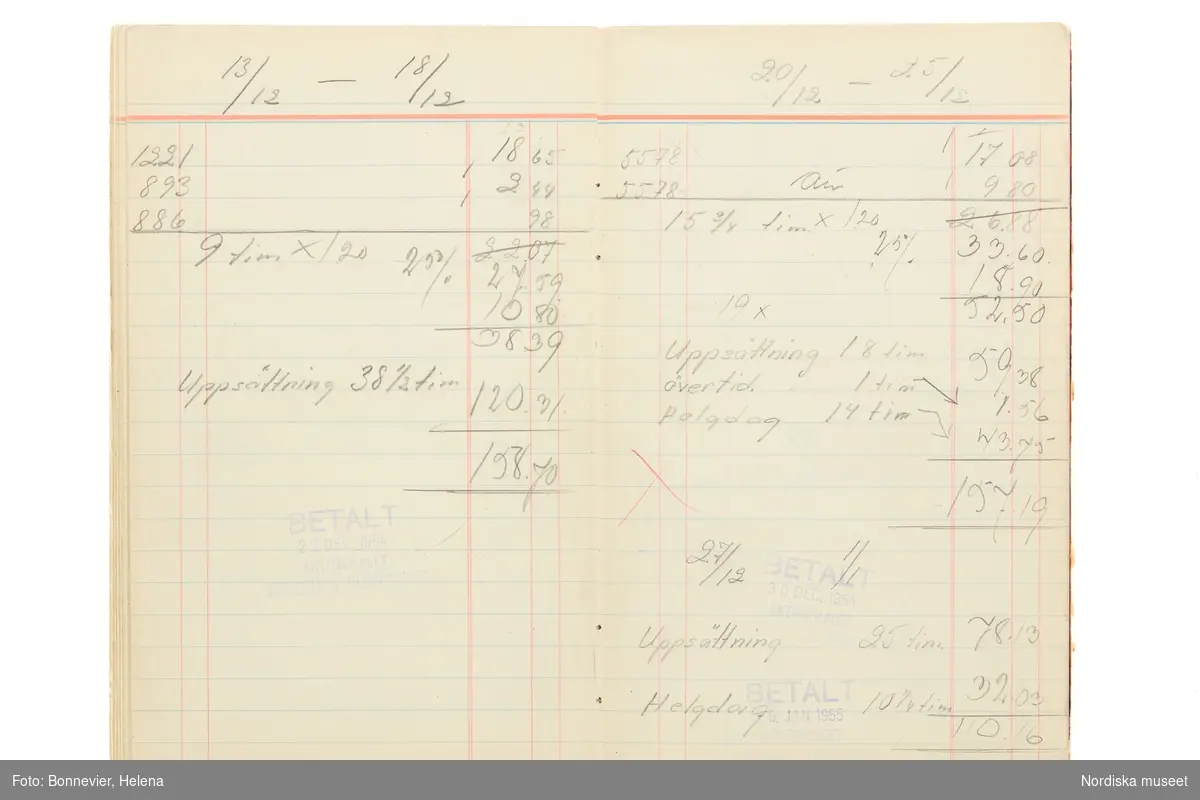 13/12 — 18/12
1221 18 65
893 2 44
886 98
9 tim X 120 22.07
25% 27.59
10 80
38 39
Uppsättning 38 1/2 tim
120.31
158.70
BETALT
20/12 — 25/12
5578 17 08
5578 9 80
15 3/4 tim X 120 26.88
25% 33.60
18.90
19 x 52.50
Uppsättning 18 tim 59,38
övertid. 1 tim 1.56
Helgdag 14 tim 43.75
157.19
27/12 1/1
BETALT
30 DEC. 1954
Uppsättning 25 tim. 78.13
BETALT
Helgdag 10 1/4 tim 32.03
JAN 1955
110.16
Foto: Bonnevier, Helena
Nordiska museet